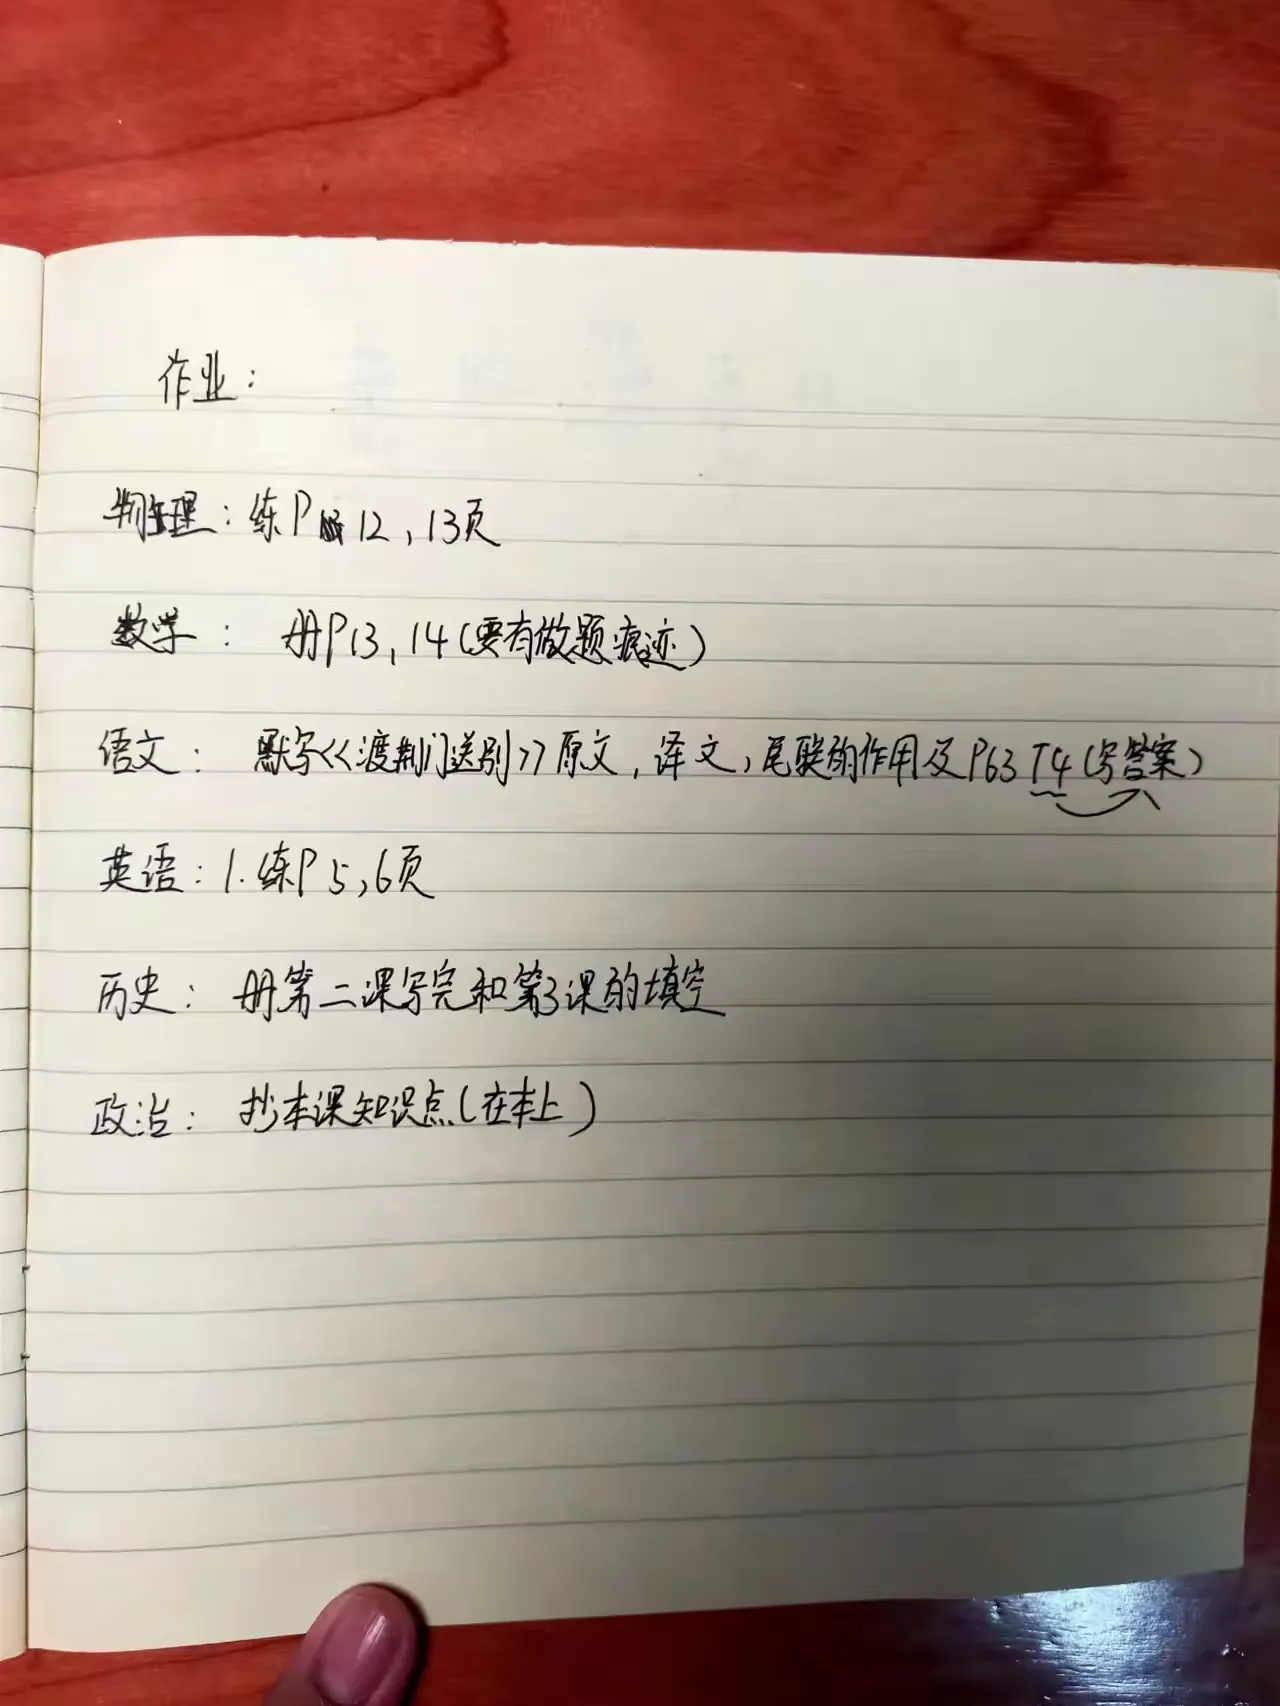 作业：
物理：练P 12，13页
数学：册P13，14（要有做题痕迹）
语文：默写<<渡荆门送别>>原文，译文，尾联的作用及P63 T4（写答案）
英语：1.练P5，6页
历史：册第二课写完和第3课的填空
政治：抄本课知识点（在本上）